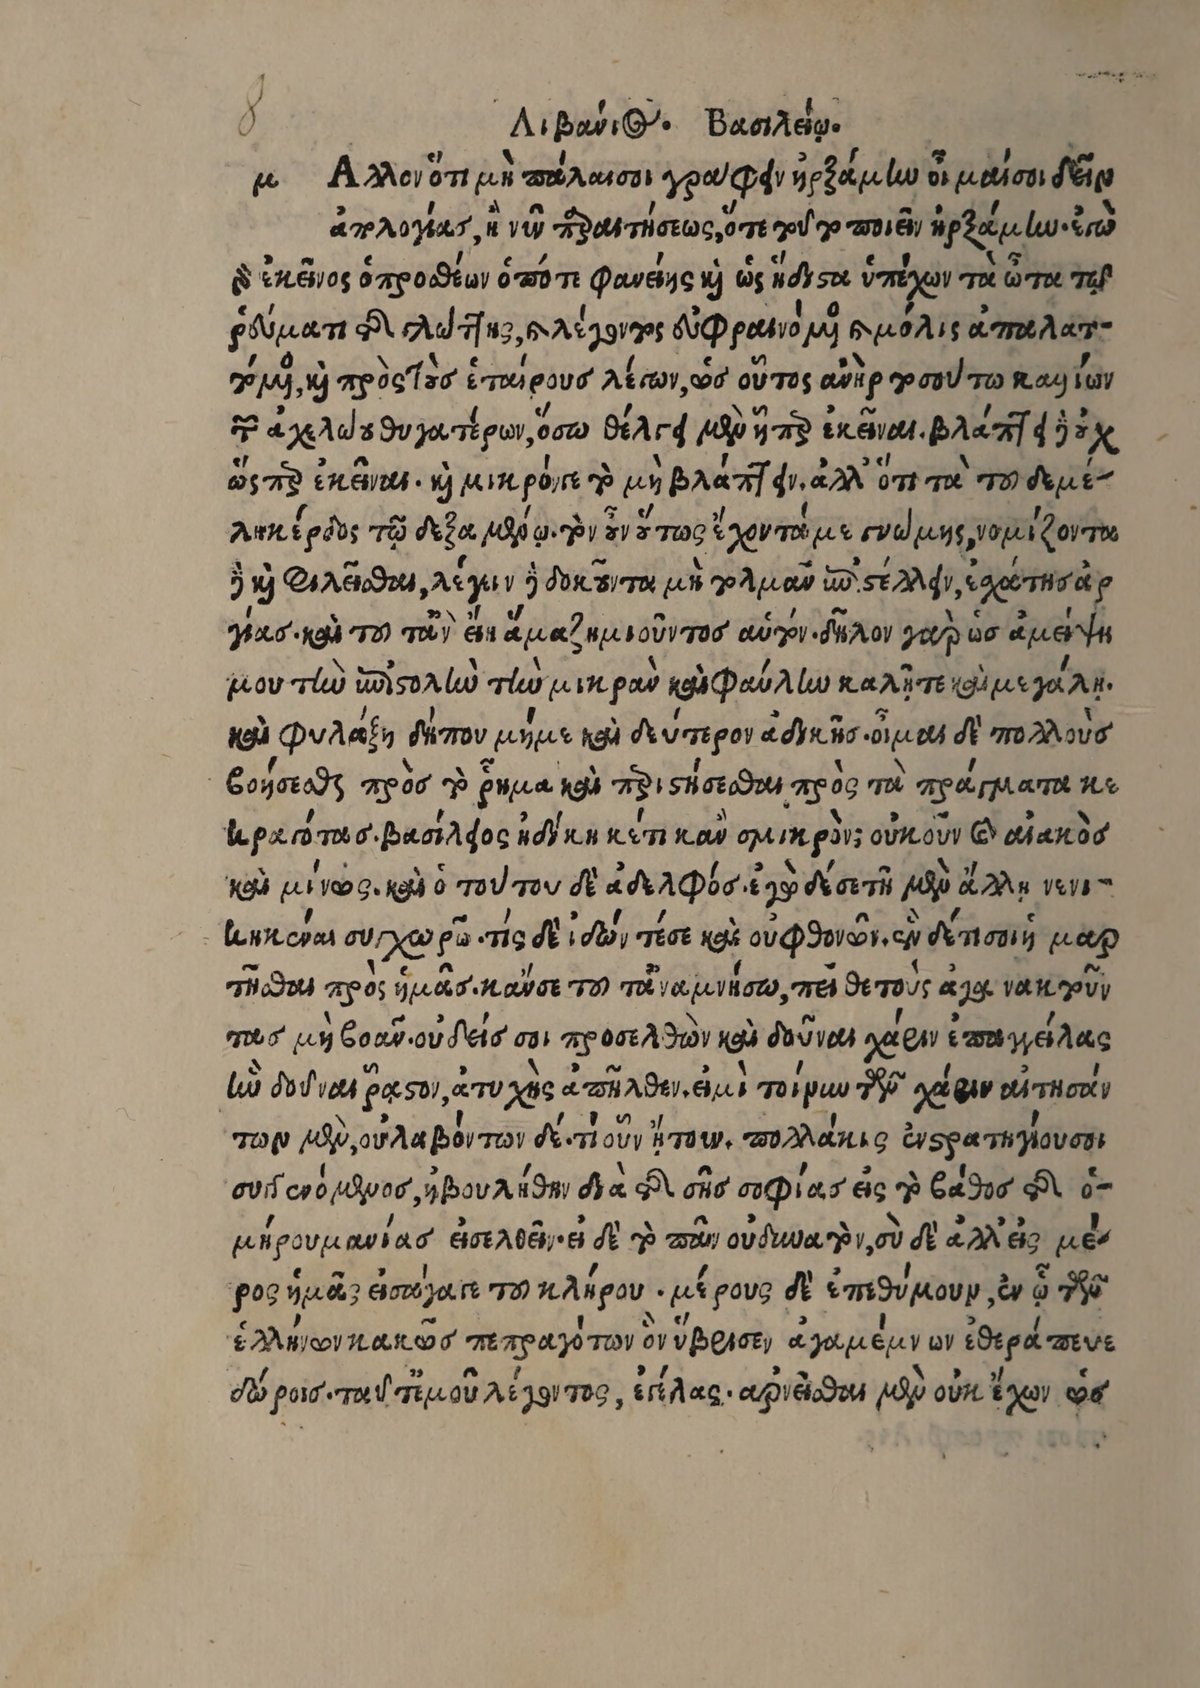 8
Λιβάνιος. Βασιλείῳ.
μ Αλλον ὅτι μὴ πάλαι σοι γράφειν ἠρξάμην οἶμαί σοι δεῖν
ἀπολογίας, ἢ νῦν παραιτήσεως, ὅτε τοῦτο ποιεῖν ἠρξάμην. ἐγὼ
γὰρ ἐκεῖνος ὁ προσθέων ὁπότε φανείης καὶ ὡς ἥδιστα ὑπέχων τὰ ὦτα τῷ
ῥεύματι τῆς γλώττης, καὶ λέγοντος εὐφραινόμενος καὶ μόλις ἀπαλατ-
τόμενος, καὶ πρὸς τοὺς ἑταίρους λέγων, ὡς οὗτος ἀνὴρ τοσούτω καλλίων
τῶν ἀχελώου θυγατέρων, ὅσω θέλγει μὲν ᾗπερ ἐκεῖναι. βλάπτει δὲ οὐχ
ὥσπερ ἐκεῖναι. καὶ μικρόν γε τὸ μὴ βλάπτειν. ἀλλ' ὅτι τὰ τοῦδε μέ-
λη κέρδος τῷ δεξαμένῳ. τὸν οὖν οὕτως ἔχοντά με γνώμης, νομίζοντα
δὲ καὶ φιλεῖσθαι, λέγειν δὲ δοκοῦντα μὴ τολμᾶν ἐπιστέλλειν, ἐσχάτης ἀρ
γίας. καὶ τοῦτ' ἂν εἴη ἅμα ζημιοῦντος αὑτόν. δῆλον γὰρ ὡς ἀμείψη
μου τὴν ἐπιστολὴν τὴν μικρὰν καὶ φαύλην καλῇ τε καὶ μεγάλῃ.
καὶ φυλάξη δήπου μή με καὶ δεύτερον ἀδικῇς. οἶμαι δὲ πολλοὺς
βοήσεσθαι πρὸς τὸ ῥῆμα καὶ περιστήσεσθαι πρὸς τὰ πράγματα κε
κραγότας. βασίλειος ἠδίκηκέ τι κἂν σμικρὸν; οὐκοῦν καὶ αἰακὸς
καὶ μίνως. καὶ ὁ τούτου δὲ ἀδελφός. ἐγὼ δέ σε τῇ μὲν ἄλλῃ νενι-
κηκέναι συγχωρῶ. τίς δὲ ἰδών τέ σε καὶ οὐ φθονῶν. ἓν δέ τί σοι ἡμαρ
τῆσθαι πρὸς ἡμᾶς. κἄν σε τοῦτ' ἀναμνήσω, πεῖθε τοὺς ἀγανακτοῦν
τας μὴ βοᾶν. οὐδείς σοι προσελθὼν καὶ δοῦναι χάριν ἐπαγγείλας
ἣν δοῦναι ῥᾷστον, ἀτυχὴς ἀπῆλθεν. εἰμὶ τοίνυν τῶν χάριν αἰτησάν
των μὲν, οὐ λαβόντων δέ. τί οὖν ᾔτουν. πολλάκις ἐν στρατηγίου σοι
συγγενόμενος, ἠβουλήθην διὰ τῆς σῆς σοφίας εἰς τὸ βάθος τῆς ὁ-
μήρου μανίας εἰσελθεῖν. εἰ δὲ τὸ πᾶν οὐ δυνατὸν, σὺ δὲ ἀλλ' εἰς μέ-
ρος ἡμᾶς εἰσάγαγε τοῦ κλήρου. μέρους δὲ ἐπεθύμουν, ἐν ᾧ τῶν
ἑλλήνων κακῶς πεπραγότων ὃν ὕβρισεν ἀγαμέμνων ἐθεράπευε
δώροις. ταῦτ' ἐμοῦ λέγοντος, ἐγέλας. ἀρνεῖσθαι μὲν οὐκ ἔχων ὡς